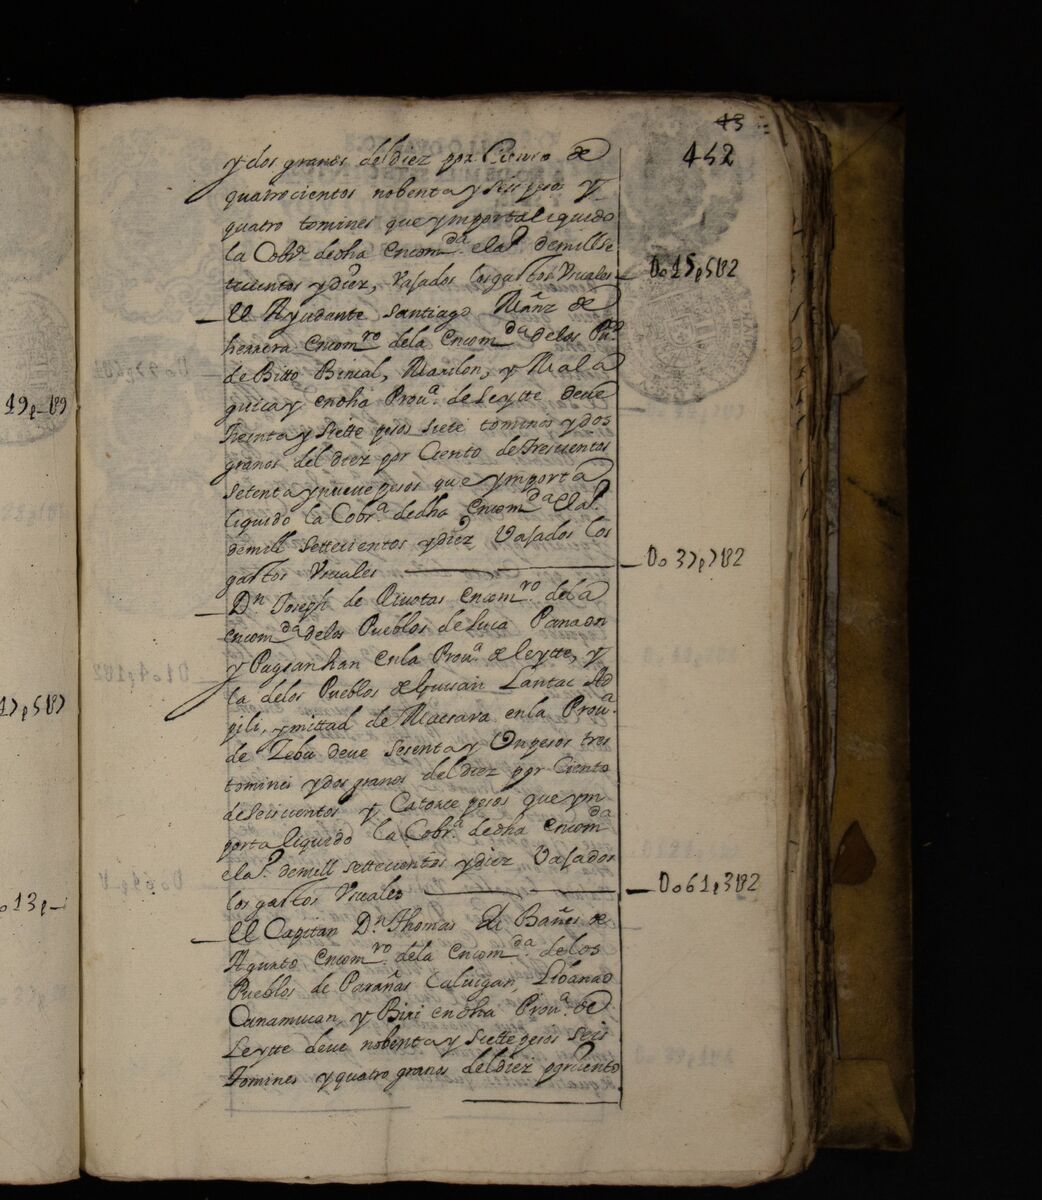 43
452
y dos granos del diez por Ciento de
quatrocientos nobenta y seis pesos y
quatro tomines que ymporta liquido
la Cobrª dedha Encomda elaº demill se
tecientos ydiez, Vajados losgastos Vsuales
Do 15p5U2
El Ayudante Santiago Mrñz de
herrera Encomro dela Encomda delos Pus
de Bitto Binial, Marilon, y Mala
guicay endha Prouª de Leytte deue
treinta y Siette pesos siete tomines ydos
granos del diez por Ciento de Trescientos
Setenta ynueue pesos que ymporta
liquido la Cobrª dedha Encomda Elaº
demill Settecientos ydiez Vajados los
gastos Vsuales
Do 37p7U2
Dn Joseph de Encomro dela
Encomda delos Pueblos de Luca Panaon
y Pagsanhan enla Prouª de leytte, y
la delos Pueblos de Guisan Lantac Ad
gili, ymittad de Macsara enla Prouª
de Zebu deue Sesenta y Un pesos tres
tomines ydos granos del diez por Ciento
de Seiscientos y Catorce pesos que ym
porta liquido la Cobrª dedha encomda
elaº demill Settecientos ydiez Vajados
los gastos Vsuales
Do 61p3U2
El Capitan Dn Thomas de Bañes de
Agurto Encomro dela Encomda delos
Pueblos de Parañas Caluigan, Libanao
Canamucan, y Biri endha Prouª de
Leytte deue nobenta y Siette pesos seis
Tomines y quatro granos del diez porciento
19p-U9
17p5U7
o13p-